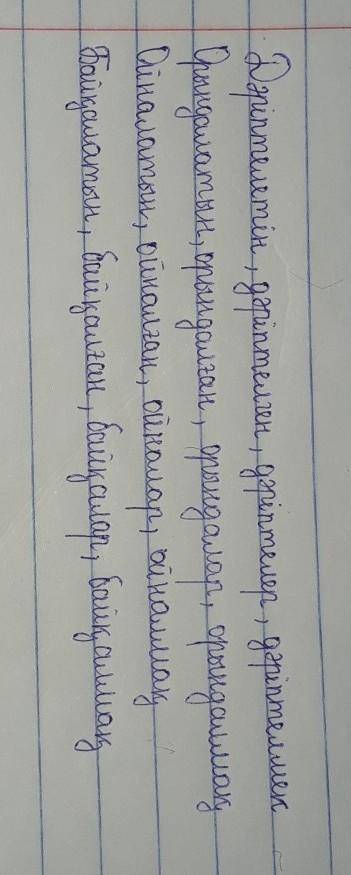 Дәріптелетін, дәріптелген, дәріптелер, дәріптелмек
Орындалатын, орындалған, орындалар, орындалмақ
Ойналатын, ойналған, ойналар, ойналмақ
Байқалатын, байқалған, байқалар, байқалмақ